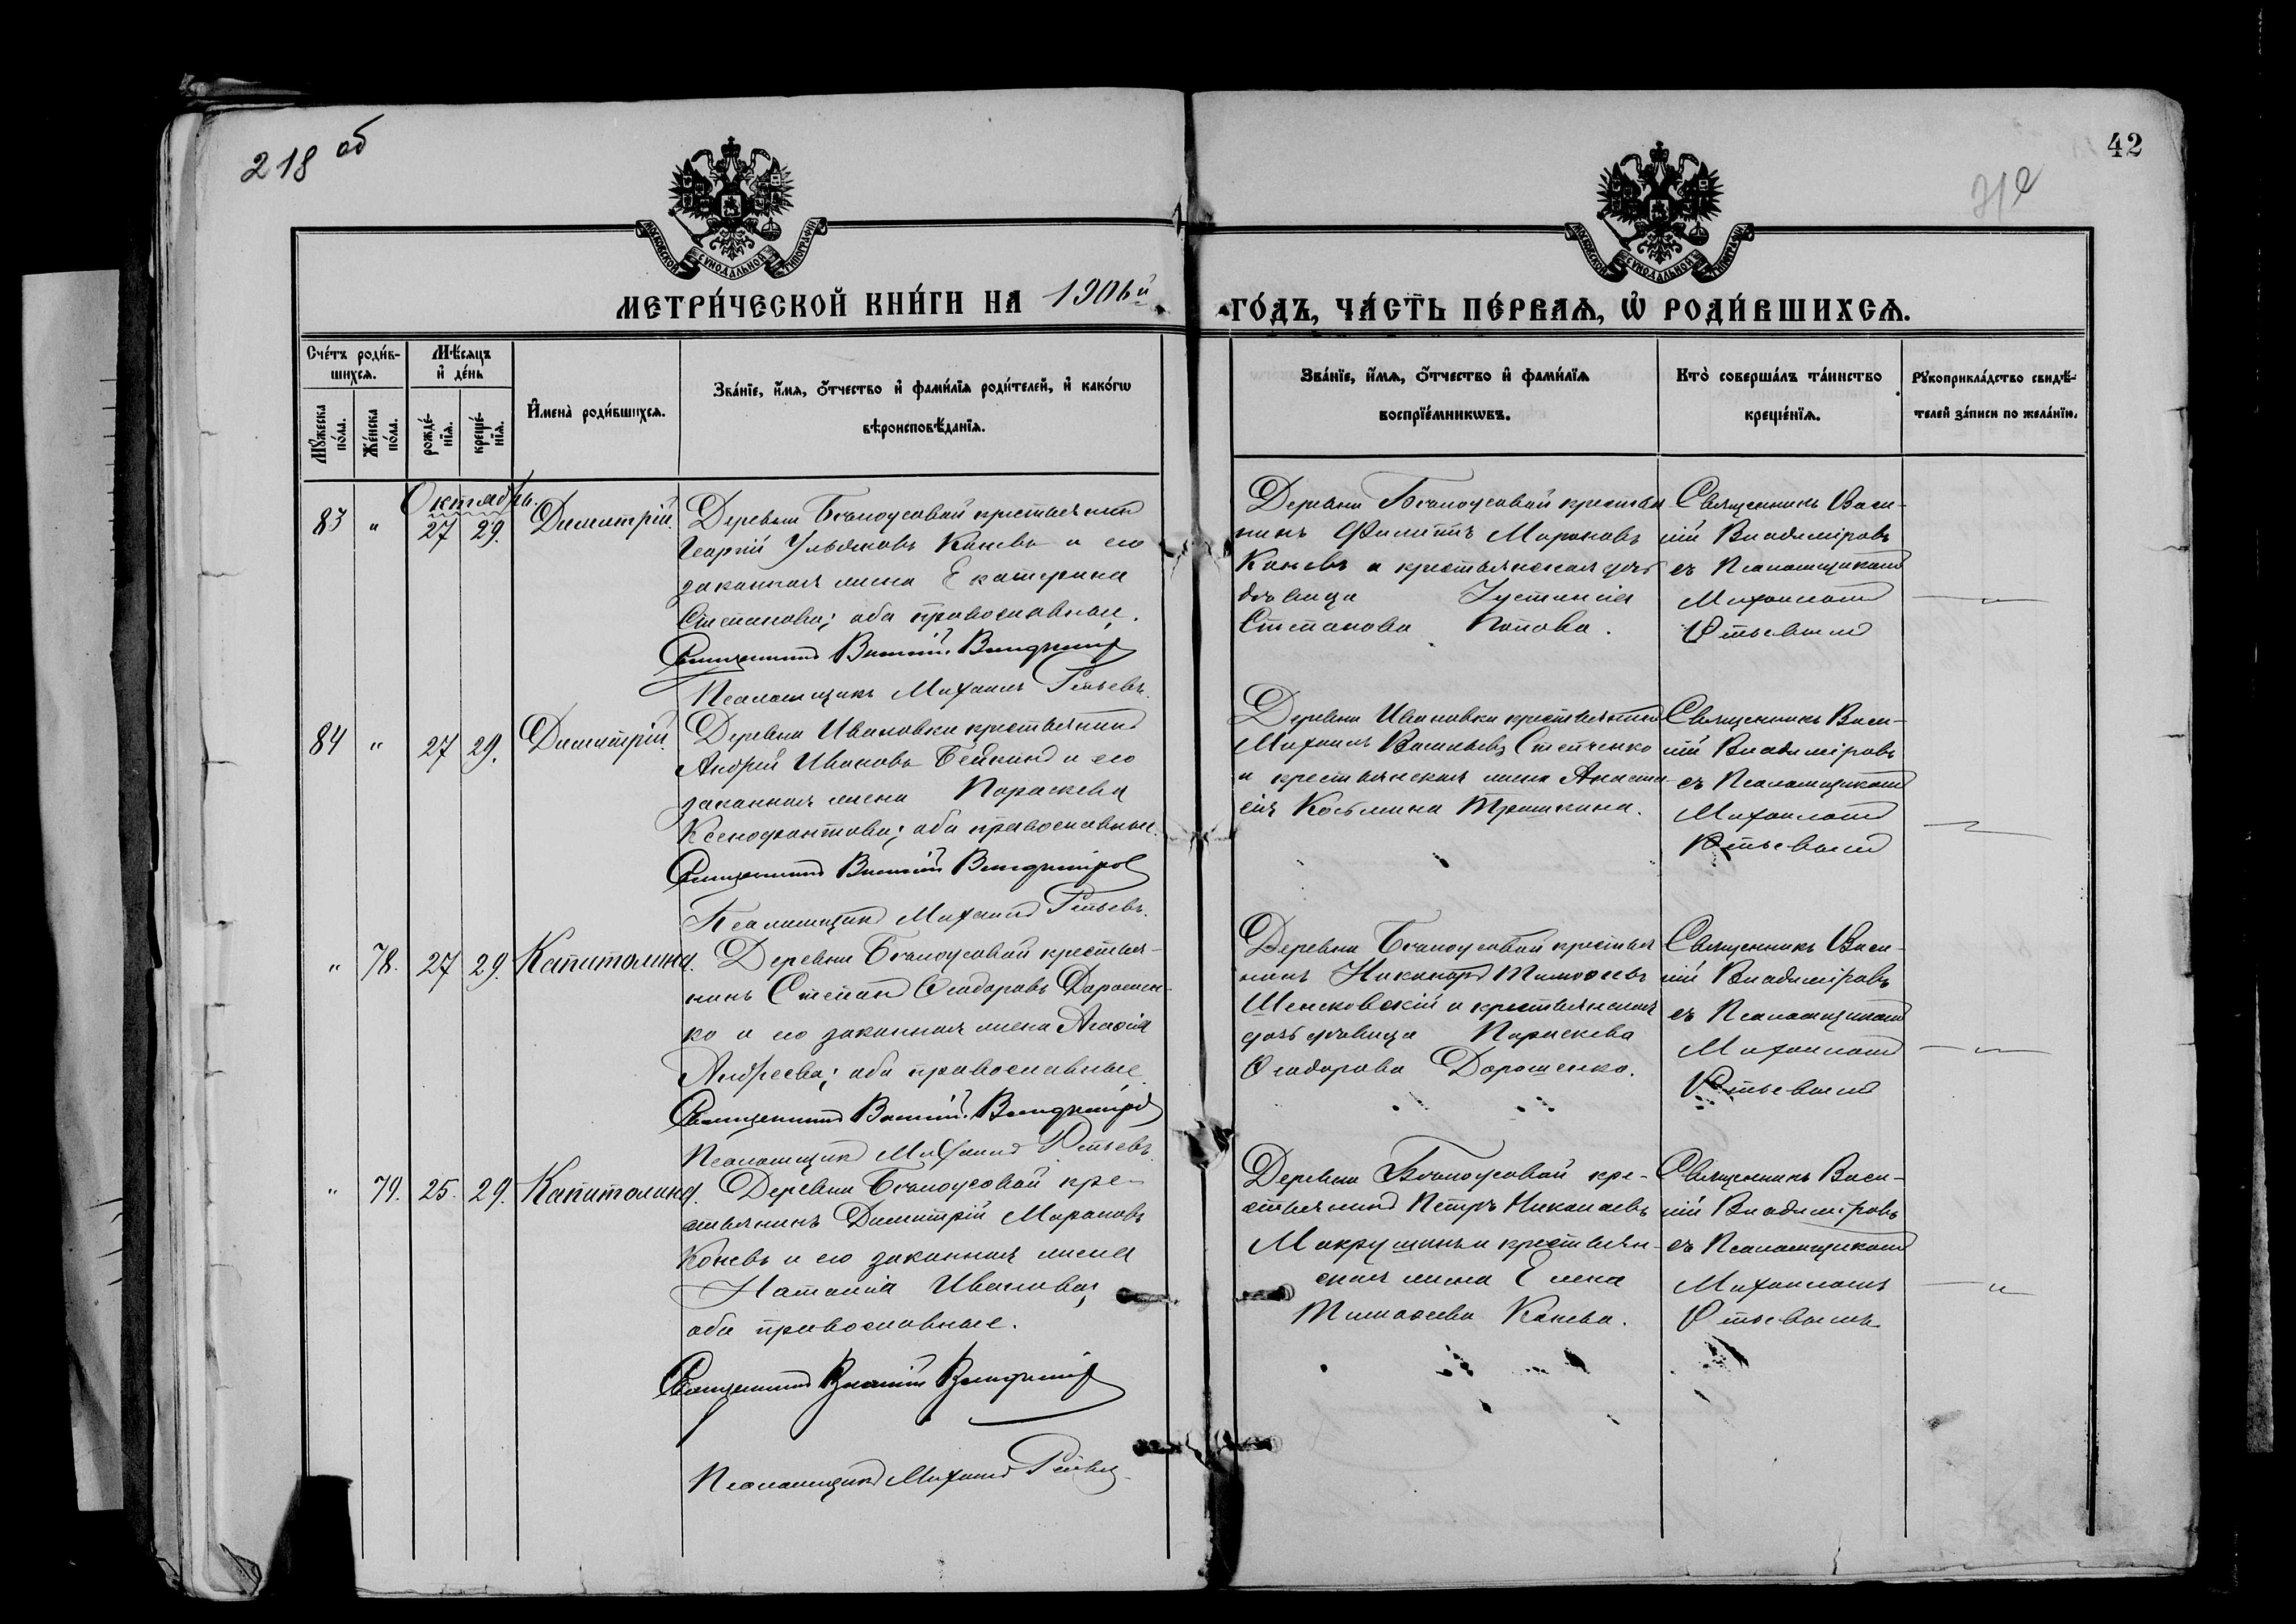 218 об
42
МОСКОВСКОЙ СѴНОДАЛЬНОЙ ТИПОГРАФІИ
МОСКОВСКОЙ СѴНОДАЛЬНОЙ ТИПОГРАФІИ
МЕТРИ́ЧЕСКОЙ КНИ́ГИ НА 1906й
ГО́ДЪ, ЧА́СТЬ ПЕ́РВАѦ, Ѽ РОДИ́ВШИХСѦ.
Сче́тъ роди́в-
шихсѧ.
Мꙋ́жеска
по́ла.
Же́нска
по́ла.
Мѣ́сѧцъ
и҆ де́нь
рожде́-
нїѧ.
креще́-
нїѧ.
И҆мена̀ роди́вшихсѧ.
Зва́нїе, и҆́мѧ, ѻ҆́тчество и҆ фами́лїѧ роди́телей, и҆ како́гѡ
вѣроисповѣ́данїѧ.
Зва́нїе, и҆́мѧ, ѻ҆́тчество и҆ фами́лїѧ
воспрїе́мникѡвъ.
Кто̀ соверша́лъ та́инство
креще́нїѧ.
Рꙋкоприкла́дство свидѣ́-
телей за́писи по жела́нїю.
Октябрь.
83 " 27 29. Димитрій.
Деревни Бѣлоусовой крестьянинъ
Георгій Ульяновъ Каневъ и его
законная жена Екатерина
Степанова; оба православные.
Священникъ Василій Владиміровъ
Псаломщикъ Михаилъ
Деревни Бѣлоусовой крестья
нинъ Филиппъ Мароновъ
Каневъ и крестьянская дочь
дѣвица Іустинія
Степанова Попова.
Священникъ Васи-
лій Владиміровъ
съ Псаломщикомъ
Михаиломъ
84 " 27 29. Димитрій.
Деревни Ивановки крестьянинъ
Андрей Ивановъ и его
законная жена Параскева
Ксенофонтова; оба православные.
Священникъ Василій Владиміровъ
Псаломщикъ Михаилъ
Деревни Ивановки крестьянинъ
Михаилъ Васильевъ Степченко
и крестьянская жена Анаста-
сія Косьмина Трошкина.
Священникъ Васи-
лій Владиміровъ
съ Псаломщикомъ
Михаиломъ
" 78. 27 29. Капитолина.
Деревни Бѣлоусовой крестья-
нинъ Степанъ Ѳеодоровъ Дорошен-
ко и его законная жена Агаѳія
Андреева; оба православные.
Священникъ Василій Владиміровъ
Псаломщикъ Михаилъ
Деревни Бѣлоусовой крестья
нинъ Никаноръ Тимоѳеевъ
и крестьянская
дочь дѣвица Параскева
Ѳеодорова Дорошенко.
Священникъ Васи-
лій Владиміровъ
съ Псаломщикомъ
Михаиломъ
" 79. 25. 29. Капитолина.
Деревни Бѣлоусовой кре-
стьянинъ Димитрій Мароновъ
Каневъ и его законная жена
Наталія Иванова;
оба православные.
Священникъ Василій Владиміровъ
Псаломщикъ Михаилъ
Деревни Бѣлоусовой кре-
стьянинъ Петръ Николаевъ
Макрушинъ и крестьян-
ская жена Елена
Тимоѳеева Канева.
Священникъ Васи-
лій Владиміровъ
съ Псаломщикомъ
Михаиломъ